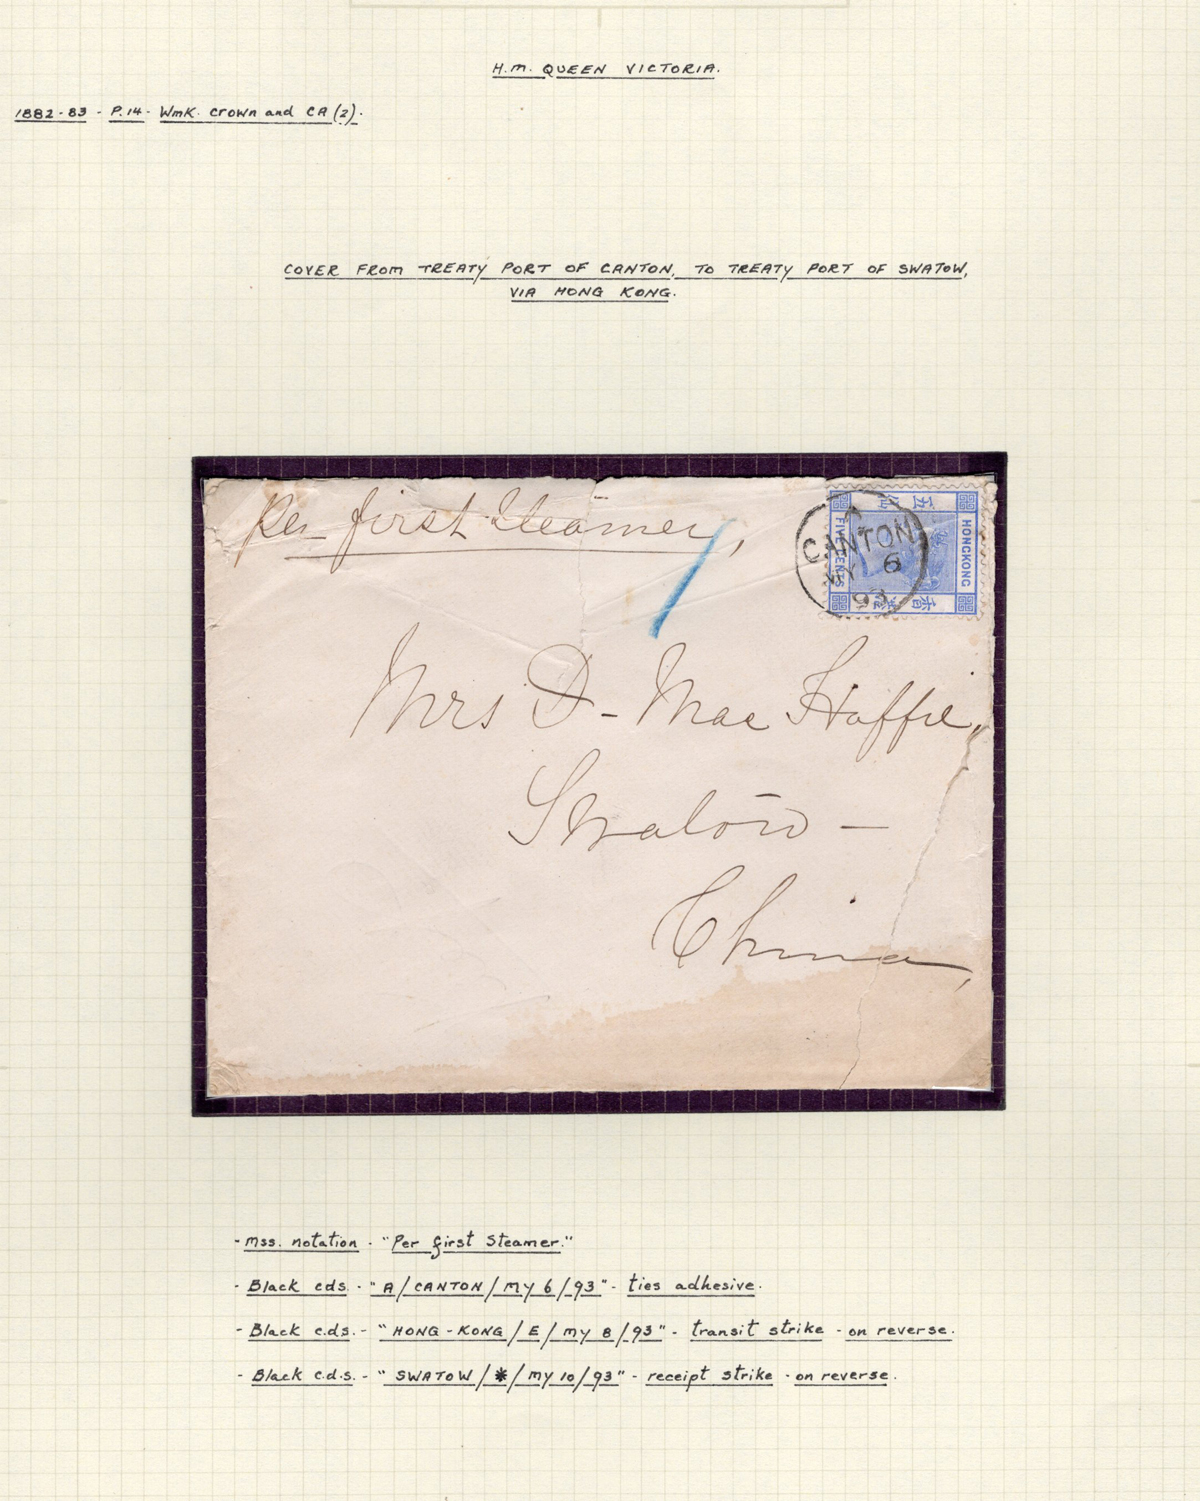 H.M. QUEEN VICTORIA.
1882-83 - P.14 - Wmk. Crown and CA (2).
COVER FROM TREATY PORT OF CANTON, TO TREATY PORT OF SWATOW,
VIA HONG KONG.
Per first Steamer,
A
CANTON
MY 6
93
五 仙
HONGKONG
FIVE CENTS
香 港
Mrs D - Mac Haffie,
Swatow -
China,
- Mss. notation - "Per first Steamer."
- Black cds. - "A/CANTON/MY 6/93" - ties adhesive.
- Black c.ds. - "HONG-KONG/E/MY 8/93" - transit strike - on reverse.
- Black c.d.s. - "SWATOW/*/MY 10/93" - receipt strike - on reverse.